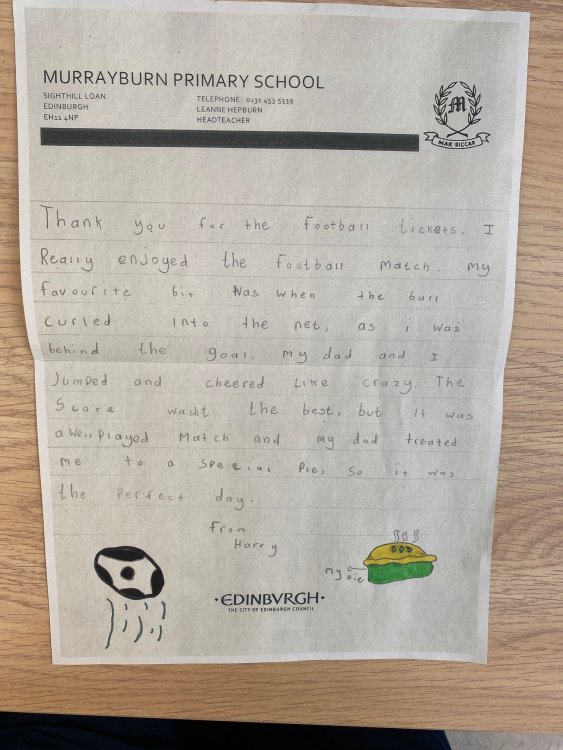 MURRAYBURN PRIMARY SCHOOL
SIGHTHILL LOAN
EDINBURGH
EH11 4NP
TELEPHONE: 0131 453 5339
LEANNE HEPBURN
HEADTEACHER
M
MAK SICCAR
Thank you for the football tickets. I
Really enjoyed the football match. my
favourite bit was when the ball
curled into the net, as i was
behind the goal. my dad and I
Jumped and cheered Like crazy. The
Score wasnt the best, but it was
a well played match and my dad treated
me to a special pie, so it was
the perfect day.
From
Harry
my pie
·EDINBVRGH·
THE CITY OF EDINBURGH COUNCIL